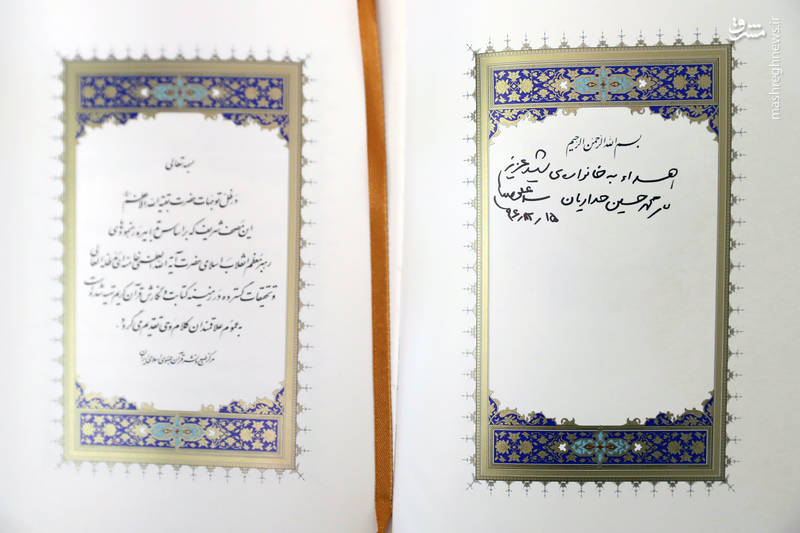 بسم الله الرحمن الرحیم
اهداء به خانواده‌ی شهید عزیز
محمد حسین حدادیان
۹۶/۱۲/۱۵
بسمه تعالی
در ظل توجهات حضرت بقیة الله الاعظم
این مصحف شریف که بر اساس تدابیر و رهنمودهای
رهبر معظم انقلاب اسلامی حضرت آیة الله العظمی خامنه‌ای مدظله العالی
و تحقیقات گسترده در زمینه کتابت و نگارش قرآن کریم تهیه شده است
به عموم علاقمندان کلام وحی تقدیم می‌گردد.
مرکز طبع و نشر قرآن جمهوری اسلامی ایران
مشرق
mashreghnews.ir